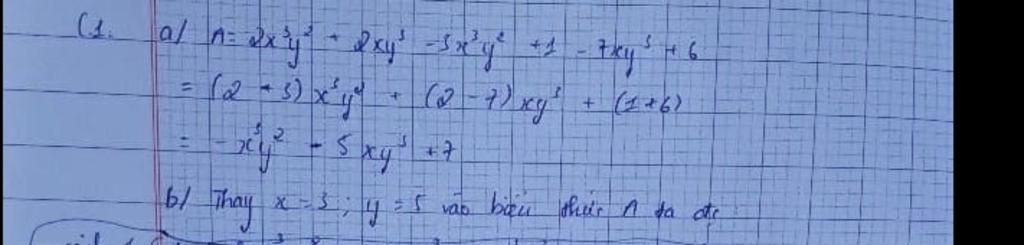 C1. a/ A = 2x³y² + 2xy³ - 3x³y² + 1 - 7xy³ + 6
= (2 - 3) x³y² + (2 - 7) xy³ + (1 + 6)
= -x³y² - 5xy³ + 7
b/ Thay x = 3; y = 5 vào biểu thức A ta đc